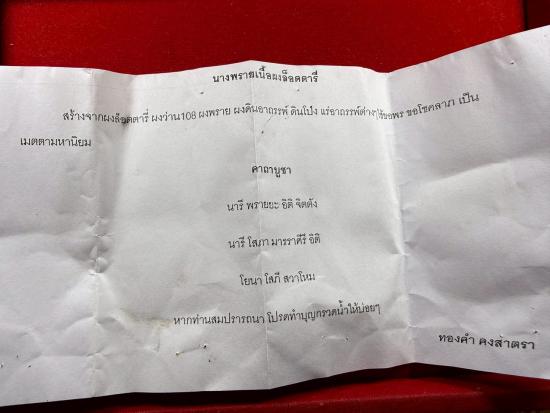 นางพรายเนื้อผงล็อตตารี่
สร้างจากผงล็อตตารี่ ผงว่าน108 ผงพราย ผงดินอาถรรพ์ ดินโป่ง แร่อาถรรพ์ต่างๆใช้ขอพร ขอโชคลาภ เป็น
เมตตามหานิยม
คาถาบูชา
นารี พรายยะ อิติ จิตตัง
นารี โสภา มารราศีรี อิติ
โยนา โสภี สวาโหม
หากท่านสมปรารถนา โปรดทำบุญกรวดน้ำให้บ่อยๆ
ทองคำ คงสาตรา